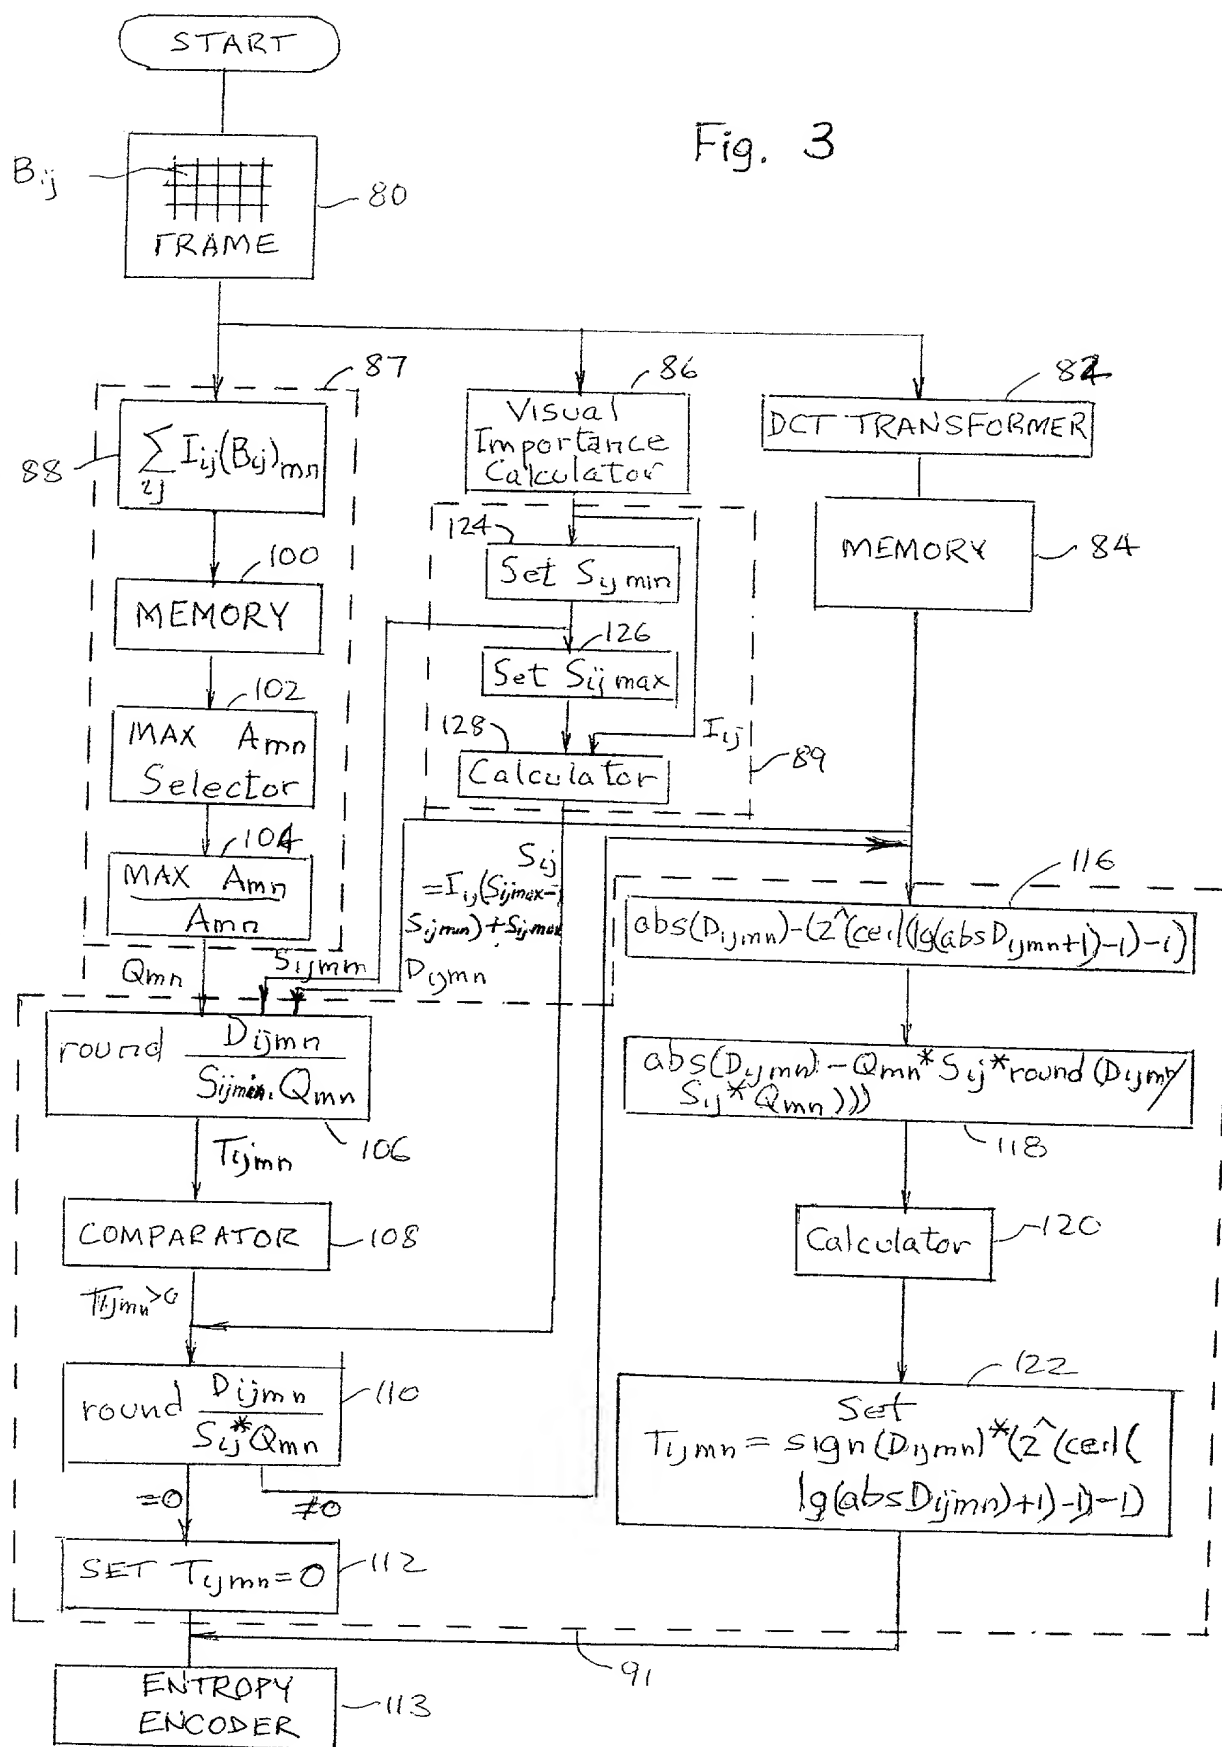 START
Fig. 3
B ij
80
FRAME
87
86
82
Visual
Importance
Calculator
DCT TRANSFORMER
88
∑ Iij(Bij)mn
ij
124
MEMORY
84
100
Set Sij min
MEMORY
126
Set Sij max
102
MAX Amn
Selector
128
Iij
89
Calculator
104
MAX Amn
Amn
Sij
= Iij(Sijmax-
Sijmin) + Sijmax
116
abs(Dijmn)-(2^(ceil(lg(absDijmn+1)-1)-1)
Qmn
Sijmin
Dijmn
round Dijmn
Sijmin.Qmn
106
abs(Dijmn)-Qmn*Sij*round(Dijmn/
Sij*Qmn)))
118
Tijmn
COMPARATOR
108
Calculator
120
Tijmn>0
round Dijmn
Sij*Qmn
110
122
Set
Tijmn = sign(Dijmn)*(2^(ceil(
lg(absDijmn)+1)-1)-1)
=0
≠0
SET Tijmn=0
112
91
ENTROPY
ENCODER
113